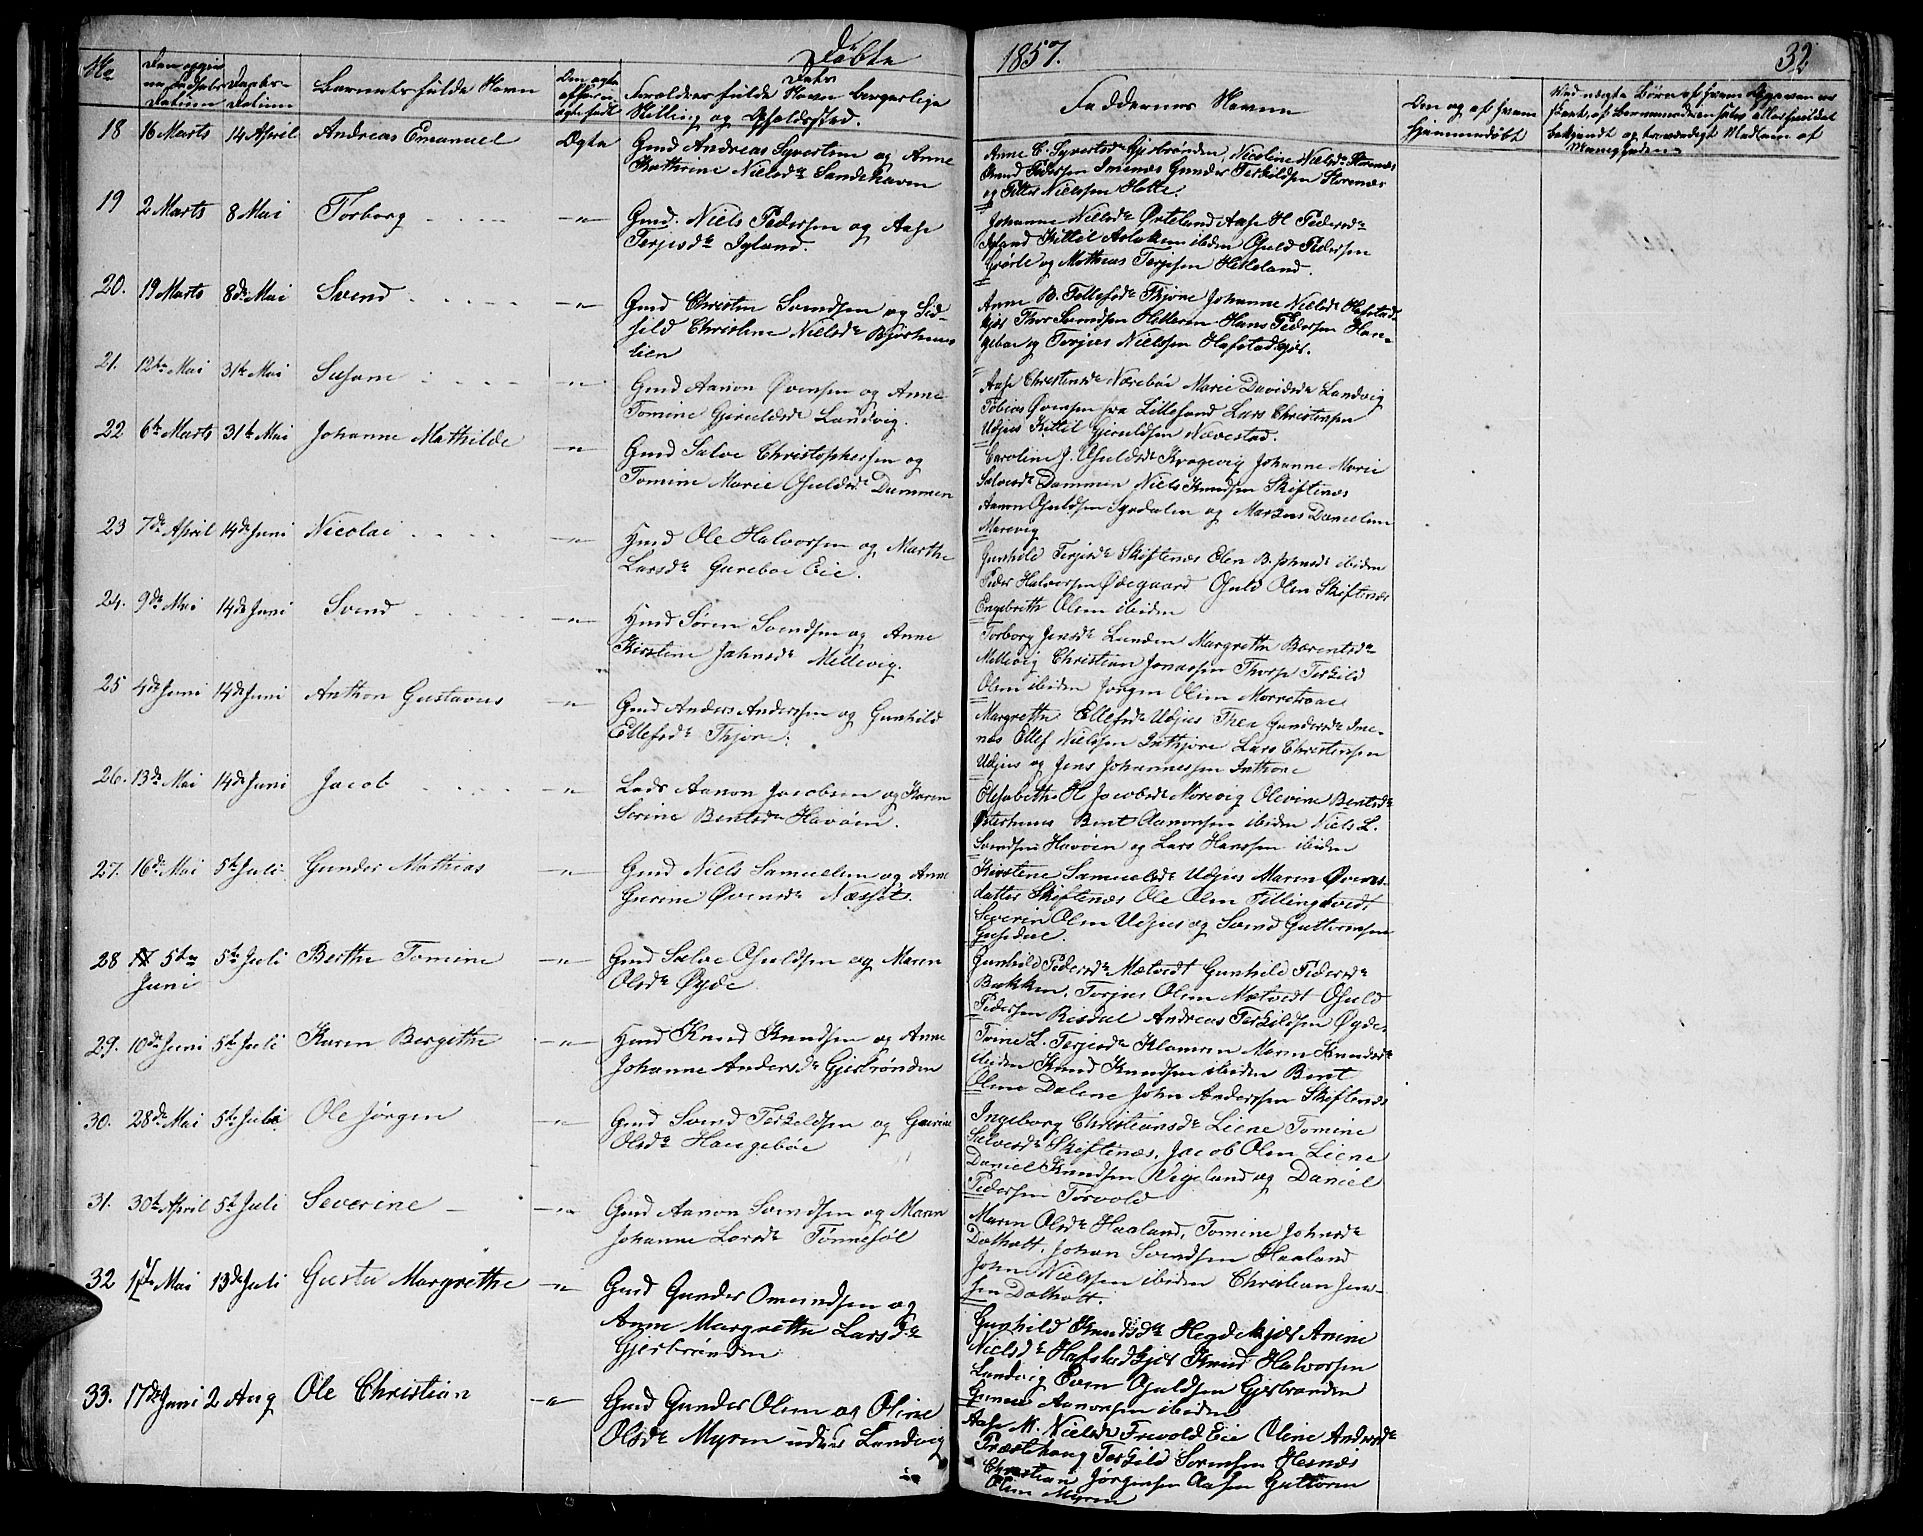 Døbte
1857.
32
No
Datum
Datum
Barnets fulde Navn
Forældres fulde Navn borgerlige
Stilling og Opholdssted.
Faddernes Navne
Den og af hvem
hjemmedøbt
18 16 Marts 14 April Andreas Emanuel Ægte Gmd Andreas Syvertsen og Anne
Kathrine Nielsdr Sandehaven
Anne C. Syvertsdr Gjerbrønden, Nicoline Nielsdr Storenæs
Knud Pedersen Imenæs Gunder Terkildsen Storenæs
og Petter Nielssen Hotte.
19 2 Marts 8 Mai Torborg Gmd. Niels Pedersen og Aase
Terjesdr Igland.
Johanne Nielsdr Østeland Aase H Pedersdr
Igland Kittil Aslaksen ibiden Osuld Pedersen
og Mathias Terjesen Hekleland.
20. 19 Marts 8de Mai Svend Gmd Christen Svendsen og Sid-
sild Christine Nielsdr
lien
Anne B. Tollefsdr Thjøre Johanne Nielsdr Hafstad-
kjær Thor Svendsen Hans Pedersen Hau-
geboe og Torjus Nielssen Hafstadkjær.
21. 12te Mai 31te Mai Susane Gmd Aanon Øvensen og Anne
Tomine Gjeruldsdr Landvig.
Aase Christensdr Nærebøe Marie Davidsdr Landvig
Tobias Øvensen fra Lillesand Lars Christensen
Udjus Kittil Gjeruldsen Nævestad.
22 6te Marts 31te Mai Johanne Mathilde Gmd Salve Christophersen og
Tomine Marie Osuldsdr Dammen
Caroline J. Osuldsdr Kragevig Johanne Marie
Salvesdr Dammen Niels Knudsen Skiftenæs
Aanon Osuldsen og Markus Danielsen
Morevig
23 7de April 14de Juni Nicolai Hmd Ole Halvorsen og Marthe
Larsdr Gureboe Eie.
Gunhild Terjesdr Skiftenæs Elen B. Johnsdr ibiden
Peder Halvorsen Ødegaard Osuld Olsen Skiftenæs
Engebreth Olsen ibiden
24. 9de Mai 14de Juni Svend Hmd Søren Svendsen og Anne
Kirstine Jahnsdr Mellevig.
Torborg Jensdr Lunden Margrethe Bærentsdr
Mellevig Christian Jonassen Thorp Terkild
Olsen ibiden Jørgen Olsen Morretvone
25 4de Juni 14de Juni Anthon Gustavus Gmd Anders Anderssen og Gunhild
Ellefsdr Thjøre.
Margrethe Ellefsdr Udjus Thea Gundersdr Ime-
næs Ellef Nielssen Inthjore Lars Christensen
Udjus og Jens Johannessen Inthore
26. 13de Mai 14de Juni Jacob Lods Aanon Jacobsen og Karen
Serine Bentsdr Havøen.
Elisabethe H Jacobsdr Morevig Olevine Bentsdr
Østerhuus Bent Aanonsen ibiden Niels L.
Svendsen Havøen og Lars Hanssen ibiden
27. 16de Mai 5te Juli Gunder Mathias Gmd Niels Samuelsen og Anne
Gurine Øvensdr
Kirstine Samuelsdr Udjus Maren Øvens-
datter Skiftenæs Ole Olsen Fillingtvedt
Severin Olsen Udjus og Svend Guttormsen
28 5te 5te Juli Berthe Tomine Gmd Salve Osuldsen og Maren
Juni
Olsdr Øyde
Gunhild Pedersdr Mætvedt Gunhild Pedersdr
Bakken, Torjus Olsen Mætvedt Osuld
Pedersen Risdal Andreas Terkildsen Øyde.
29. 10de Juni 5te Juli Karen Bergithe Hmd Knud Knudsen og Anne
Johanne Andersdr Gjerbrønden
Tomine L. Terjesdr Klomren Maren Knudsdr
ibiden Knud Knudsen ibiden Bent
Olsen Dalene John Anderssen Skiftenæs
30. 28de Mai 5te Juli Ole Jørgen Gmd Svend Terkeldsen og Gurine
Olsdr Haugebøe
Ingeborg Christiansdr Liene Tomine
Salvesdr Skiftenæs, Jacob Olsen Liene
Daniel Knudsen Vigeland og Daniel
Pedersen Torvold
31. 30te April 5te Juli Severine Gmd Aanon Svendsen og Maren
Johanne Larsdr Tønnesøl
Maren Olsdr Haaland, Tomine Johnsdr
Dalholt, Johan Svendsen Haaland
John Nielssen ibiden Christian Jens-
sen Dalholt.
32 Mai 13de Juli Gusta Margrethe Gmd Gunder Omundsen og
Anne Margrethe Larsdr
Gjerbrønden
Gunhild Knudsdr Hegdekjær Anine
Nielsdr Hafstadkjær Knud Halvorsen
Landvig Even Osuldsen Gjerbrønden
Gunder Aanonsen ibiden
33. 17de Juni 2 Aug Ole Christian Gmd Gunder Olsen og Oline
Olsdr Myren Landvig
Aase M. Nielsdr Frivold Eie Oline Andersdr
Præsthaug Terkild Sørensen Hesnæs
Christian Jørgensen Aasen Guttorm
Olsen Myren